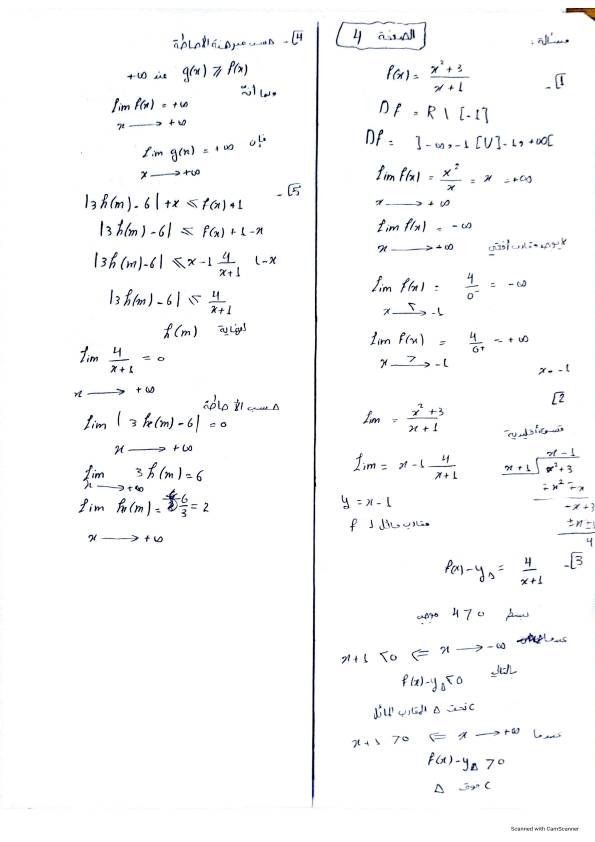 مسألة:
الصفحة 4
1- f(x) = x²+3 / x+1
Df = R \ {-1}
Df = ]-∞, -1[ U ]-1, +∞[
lim f(x) = x²/x = x = +∞
x → +∞
lim f(x) = -∞
x → +∞
لا يوجد مقارب أفقي
lim f(x) = 4/0⁻ = -∞
x <→ -1
lim f(x) = 4/0+ = +∞
x >→ -1
x = -1
2]
lim = x²+3 / x+1
قسمة إقليدية
x - 1
x+1 √ x²+3
lim = x-1 4/x+1
y = x-1
مقارب مائل ل f
3- f(x) - y∆ = 4/x+1
بسط 4 > 0 موجب
عندما x → -∞ ⇐ x+1 < 0
بالتالي
f(x) - y∆ < 0
C تحت ∆ المقارب المائل
عندما x → +∞ ⇐ x+1 > 0
f(x) - y∆ > 0
C فوق ∆
4- حسب مبرهنة الاحاطة
g(x) ⩾ f(x) عند +∞
وبما أنه
lim f(x) = +∞
x → +∞
فإن lim g(x) = +∞
x → +∞
5- |3h(m) - 6| + x ⩽ f(x) + 1
|3h(m) - 6| ⩽ f(x) + 1 - x
|3h(m) - 6| ⩽ x - 1 4/x+1 1 - x
|3h(m) - 6| ⩽ 4/x+1
h(m)
lim 4/x+1 = 0
x → +∞
حسب الاحاطة
lim |3h(m) - 6| = 0
x → +∞
lim 3h(m) = 6
x → +∞
lim h(m) = 6/3 = 2
x → +∞
Scanned with CamScanner